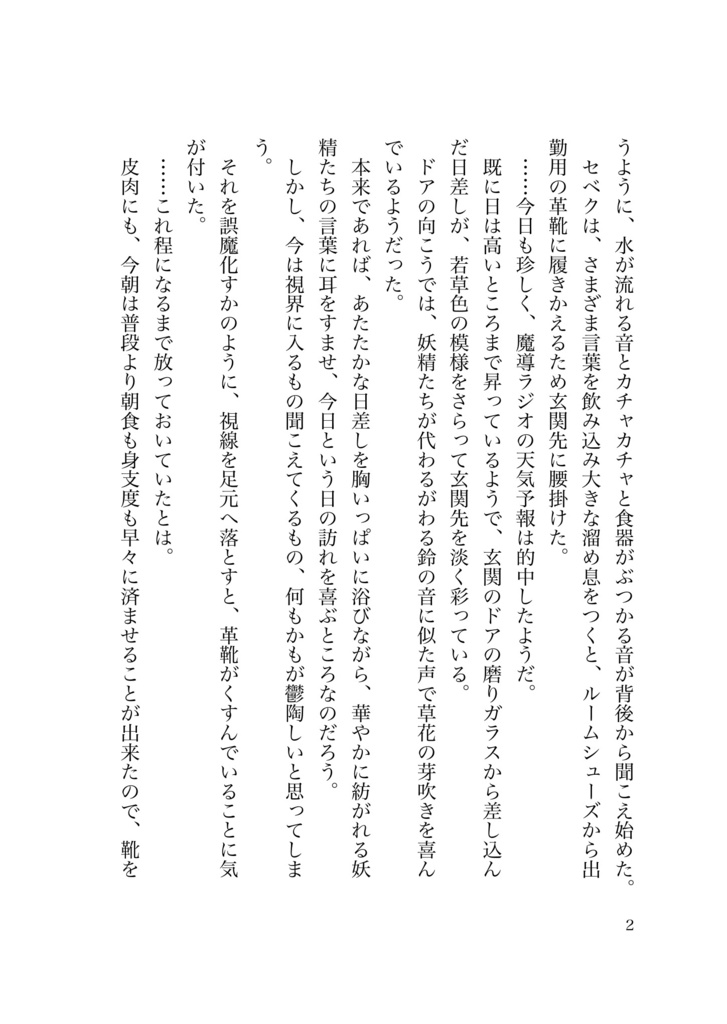 うように、水が流れる音とカチャカチャと食器がぶつかる音が背後から聞こえ始めた。
セベクは、さまざま言葉を飲み込み大きな溜め息をつくと、ルームシューズから出
勤用の革靴に履きかえるため玄関先に腰掛けた。
……今日も珍しく、魔導ラジオの天気予報は的中したようだ。
既に日は高いところまで昇っているようで、玄関のドアの磨りガラスから差し込ん
だ日差しが、若草色の模様をさらって玄関先を淡く彩っている。
ドアの向こうでは、妖精たちが代わるがわる鈴の音に似た声で草花の芽吹きを喜ん
でいるようだった。
本来であれば、あたたかな日差しを胸いっぱいに浴びながら、華やかに紡がれる妖
精たちの言葉に耳をすませ、今日という日の訪れを喜ぶところなのだろう。
しかし、今は視界に入るもの聞こえてくるもの、何もかもが鬱陶しいと思ってしま
う。
それを誤魔化すかのように、視線を足元へ落とすと、革靴がくすんでいることに気
が付いた。
……これ程になるまで放っておいていたとは。
皮肉にも、今朝は普段より朝食も身支度も早々に済ませることが出来たので、靴を
2